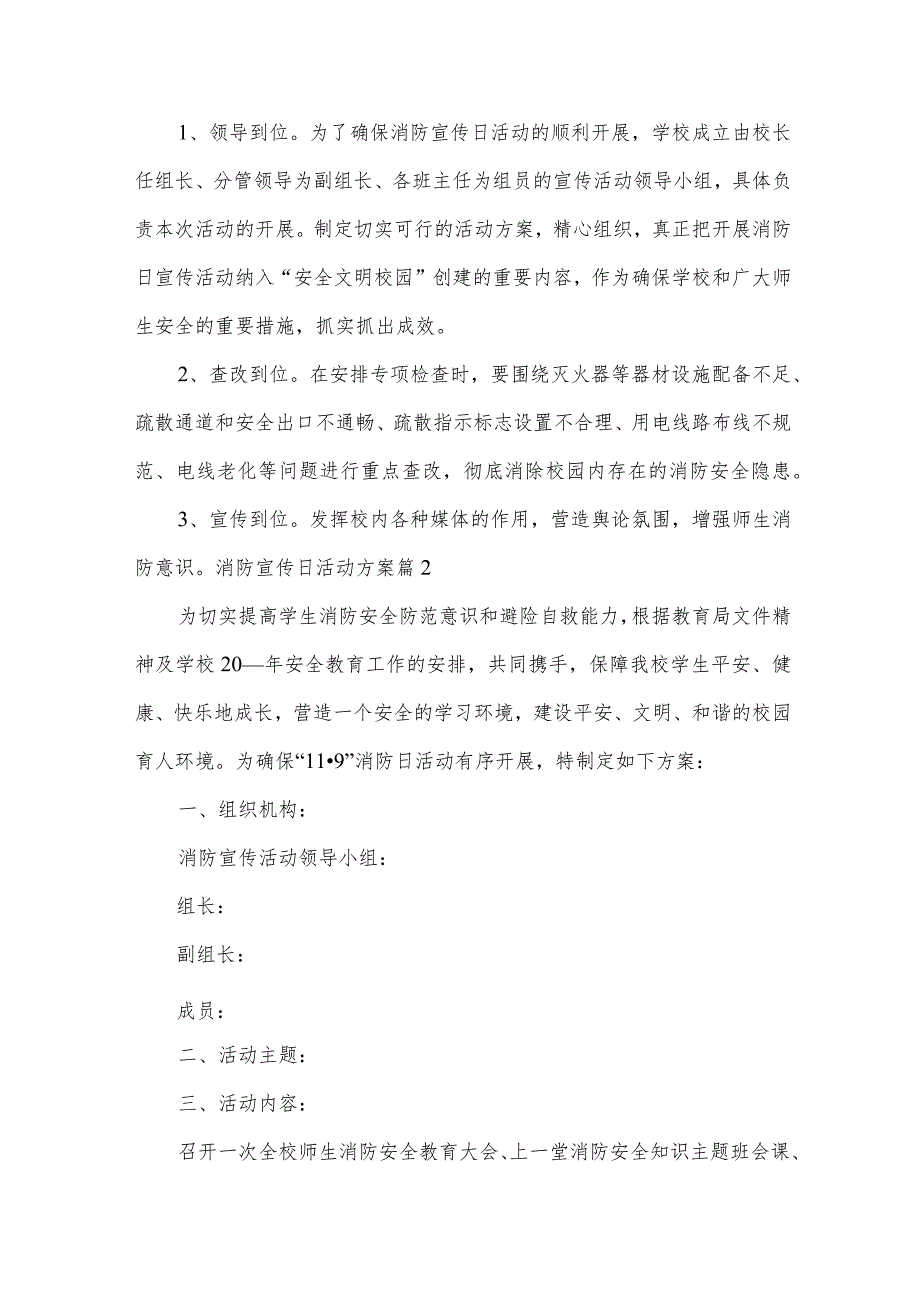 1、领导到位。为了确保消防宣传日活动的顺利开展，学校成立由校长
任组长、分管领导为副组长、各班主任为组员的宣传活动领导小组，具体负
责本次活动的开展。制定切实可行的活动方案，精心组织，真正把开展消防
日宣传活动纳入“安全文明校园”创建的重要内容，作为确保学校和广大师
生安全的重要措施，抓实抓出成效。
2、查改到位。在安排专项检查时，要围绕灭火器等器材设施配备不足、
疏散通道和安全出口不通畅、疏散指示标志设置不合理、用电线路布线不规
范、电线老化等问题进行重点查改，彻底消除校园内存在的消防安全隐患。
3、宣传到位。发挥校内各种媒体的作用，营造舆论氛围，增强师生消
防意识。消防宣传日活动方案篇2
为切实提高学生消防安全防范意识和避险自救能力，根据教育局文件精
神及学校20—年安全教育工作的安排，共同携手，保障我校学生平安、健
康、快乐地成长，营造一个安全的学习环境，建设平安、文明、和谐的校园
育人环境。为确保“11•9”消防日活动有序开展，特制定如下方案：
一、组织机构：
消防宣传活动领导小组：
组长：
副组长：
成员：
二、活动主题：
三、活动内容：
召开一次全校师生消防安全教育大会、上一堂消防安全知识主题班会课、